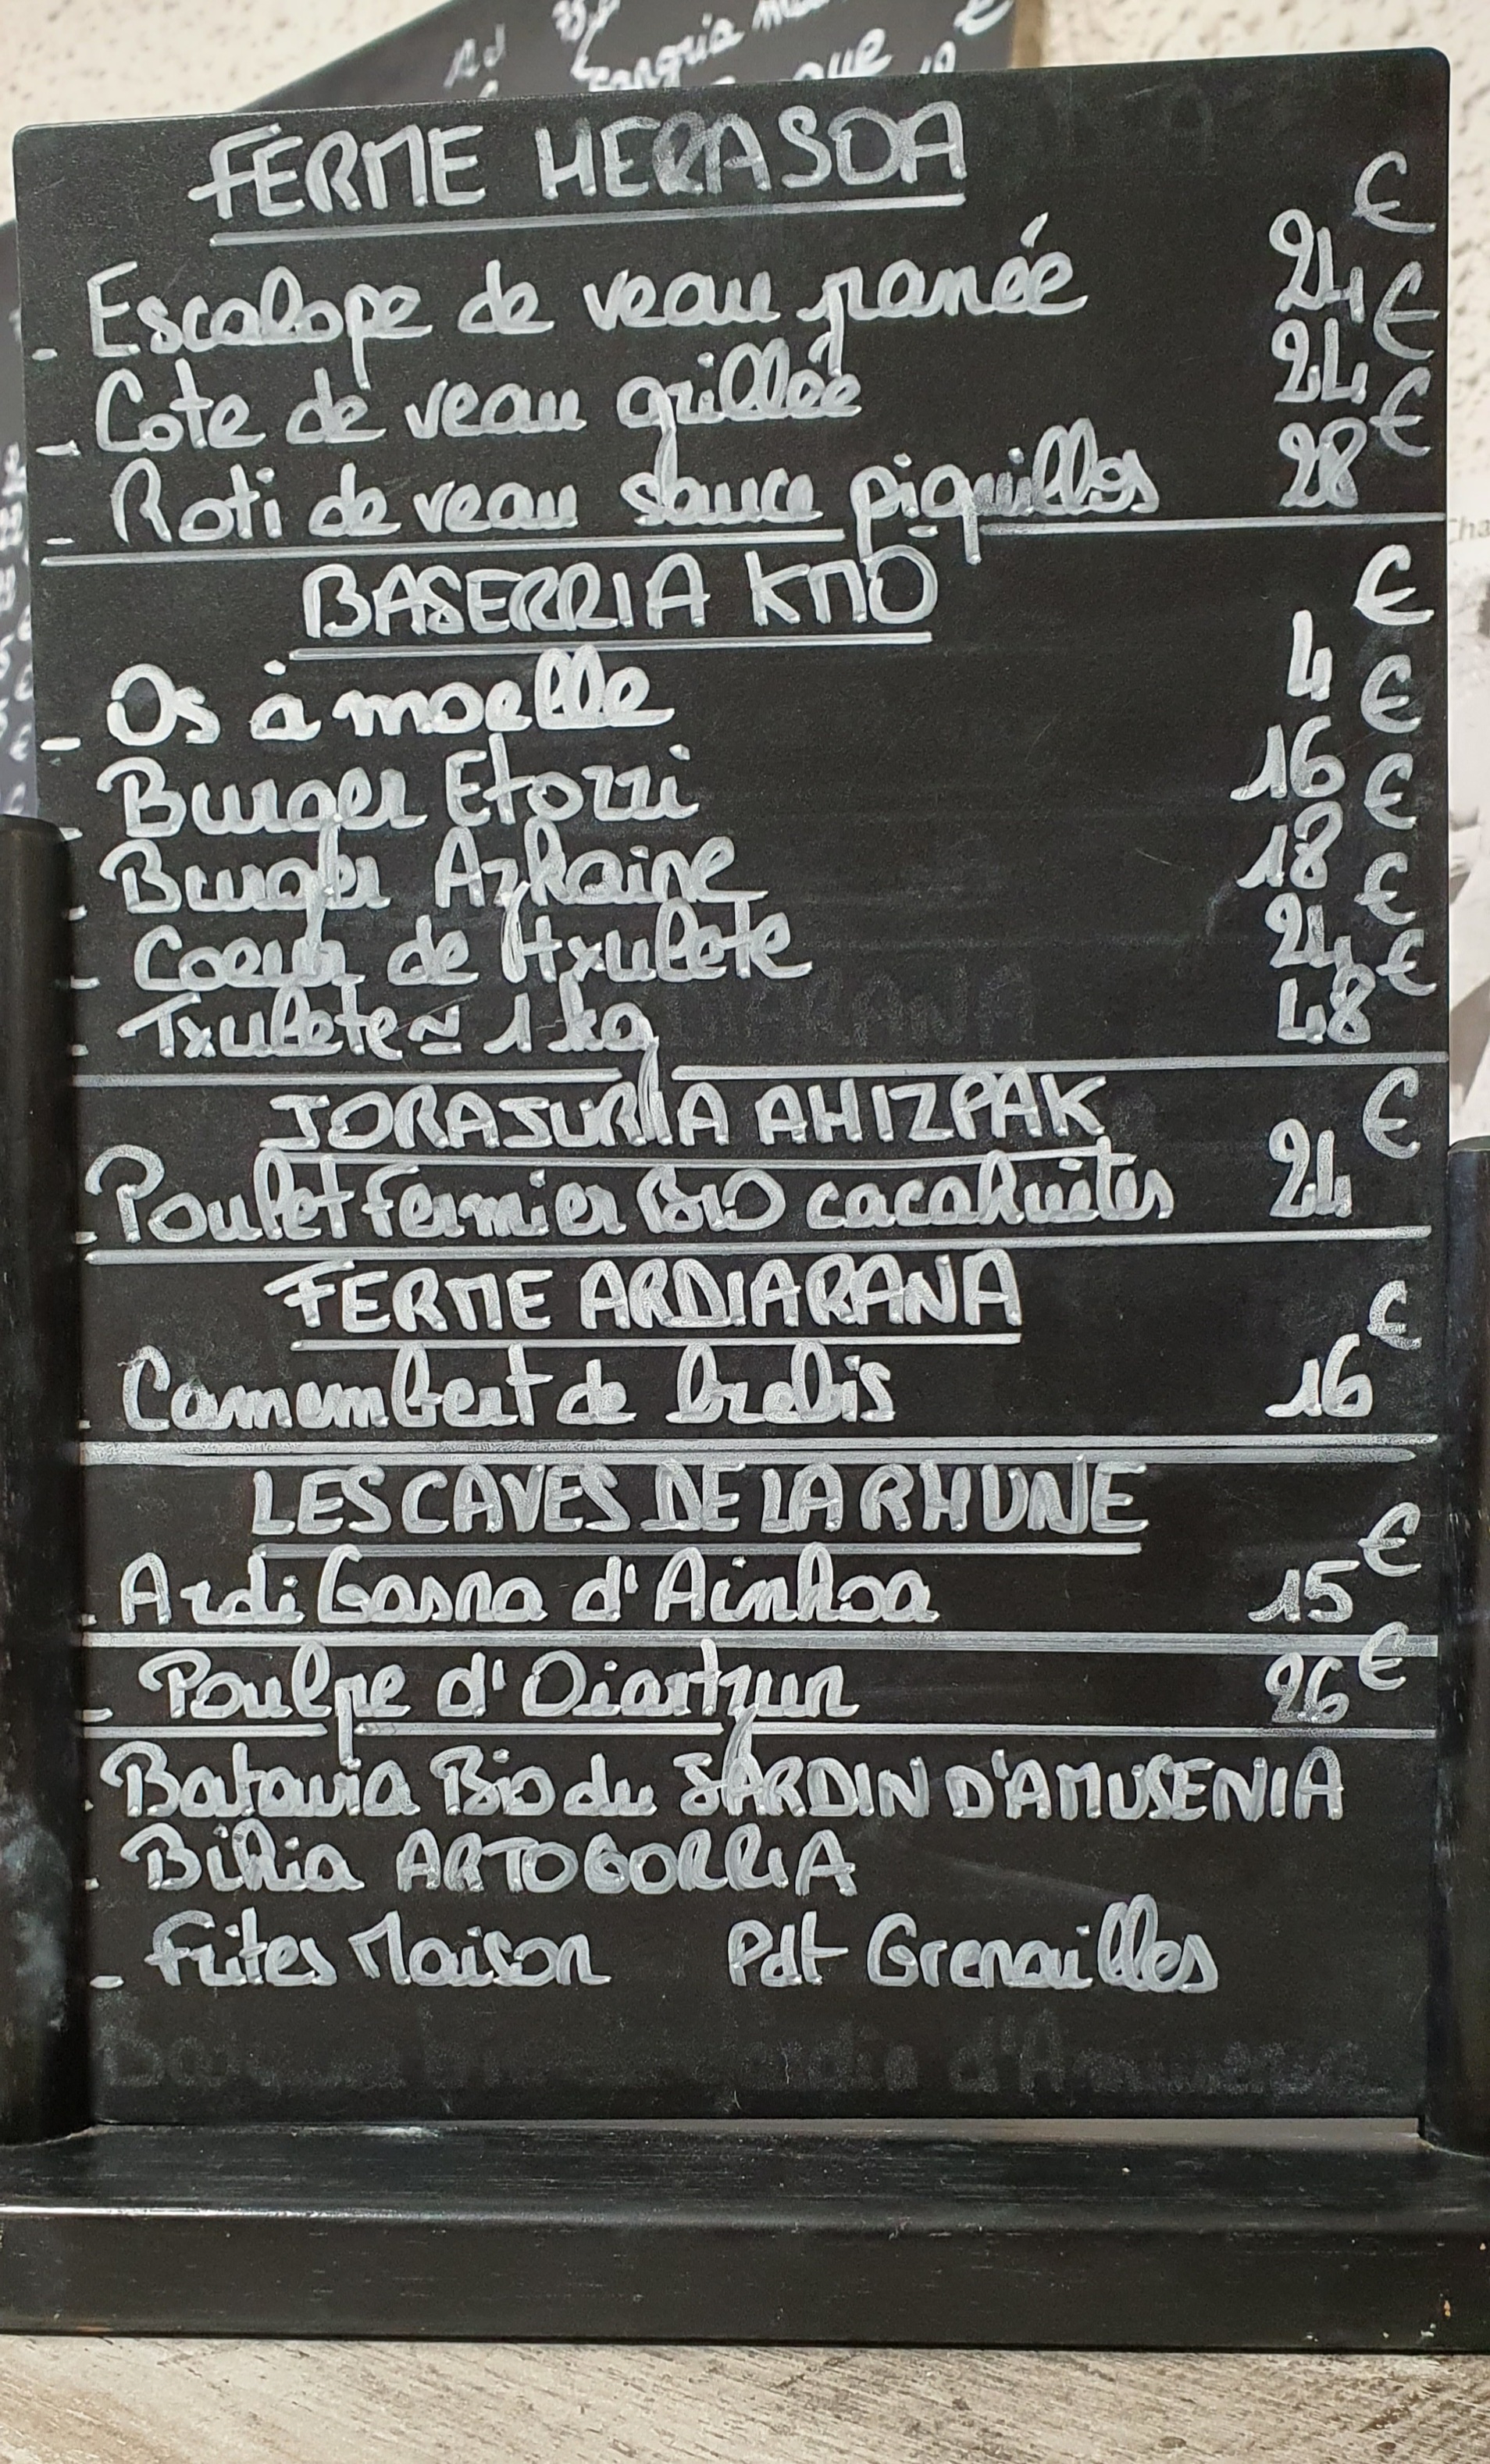 Sangria
que
FERME HERASOA
- Escalope de veau panée 24 €
- Cote de veau grillée 24 €
- Roti de veau sauce piquillos 28 €
BASERRIA KMO
- Os à moelle 4 €
- Burger Etorri 16 €
- Burger Azkaine 18 €
- Coeur de txulete 24 €
- Txulete ≃ 1 kg 48 €
JORAJURIA AHIZPAK
- Poulet Fermier BIO cacahuètes 24 €
FERME ARDIARANA
- Camembert de brebis 16 €
LES CAVES DE LA RHUNE
- Ardi Gasna d'Ainhoa 15 €
- Poulpe d'Oiartzun 26 €
- Batavia Bio du JARDIN D'AMUSENIA
- Bihia ARTOGORRIA
- Frites Maison Pdt Grenailles